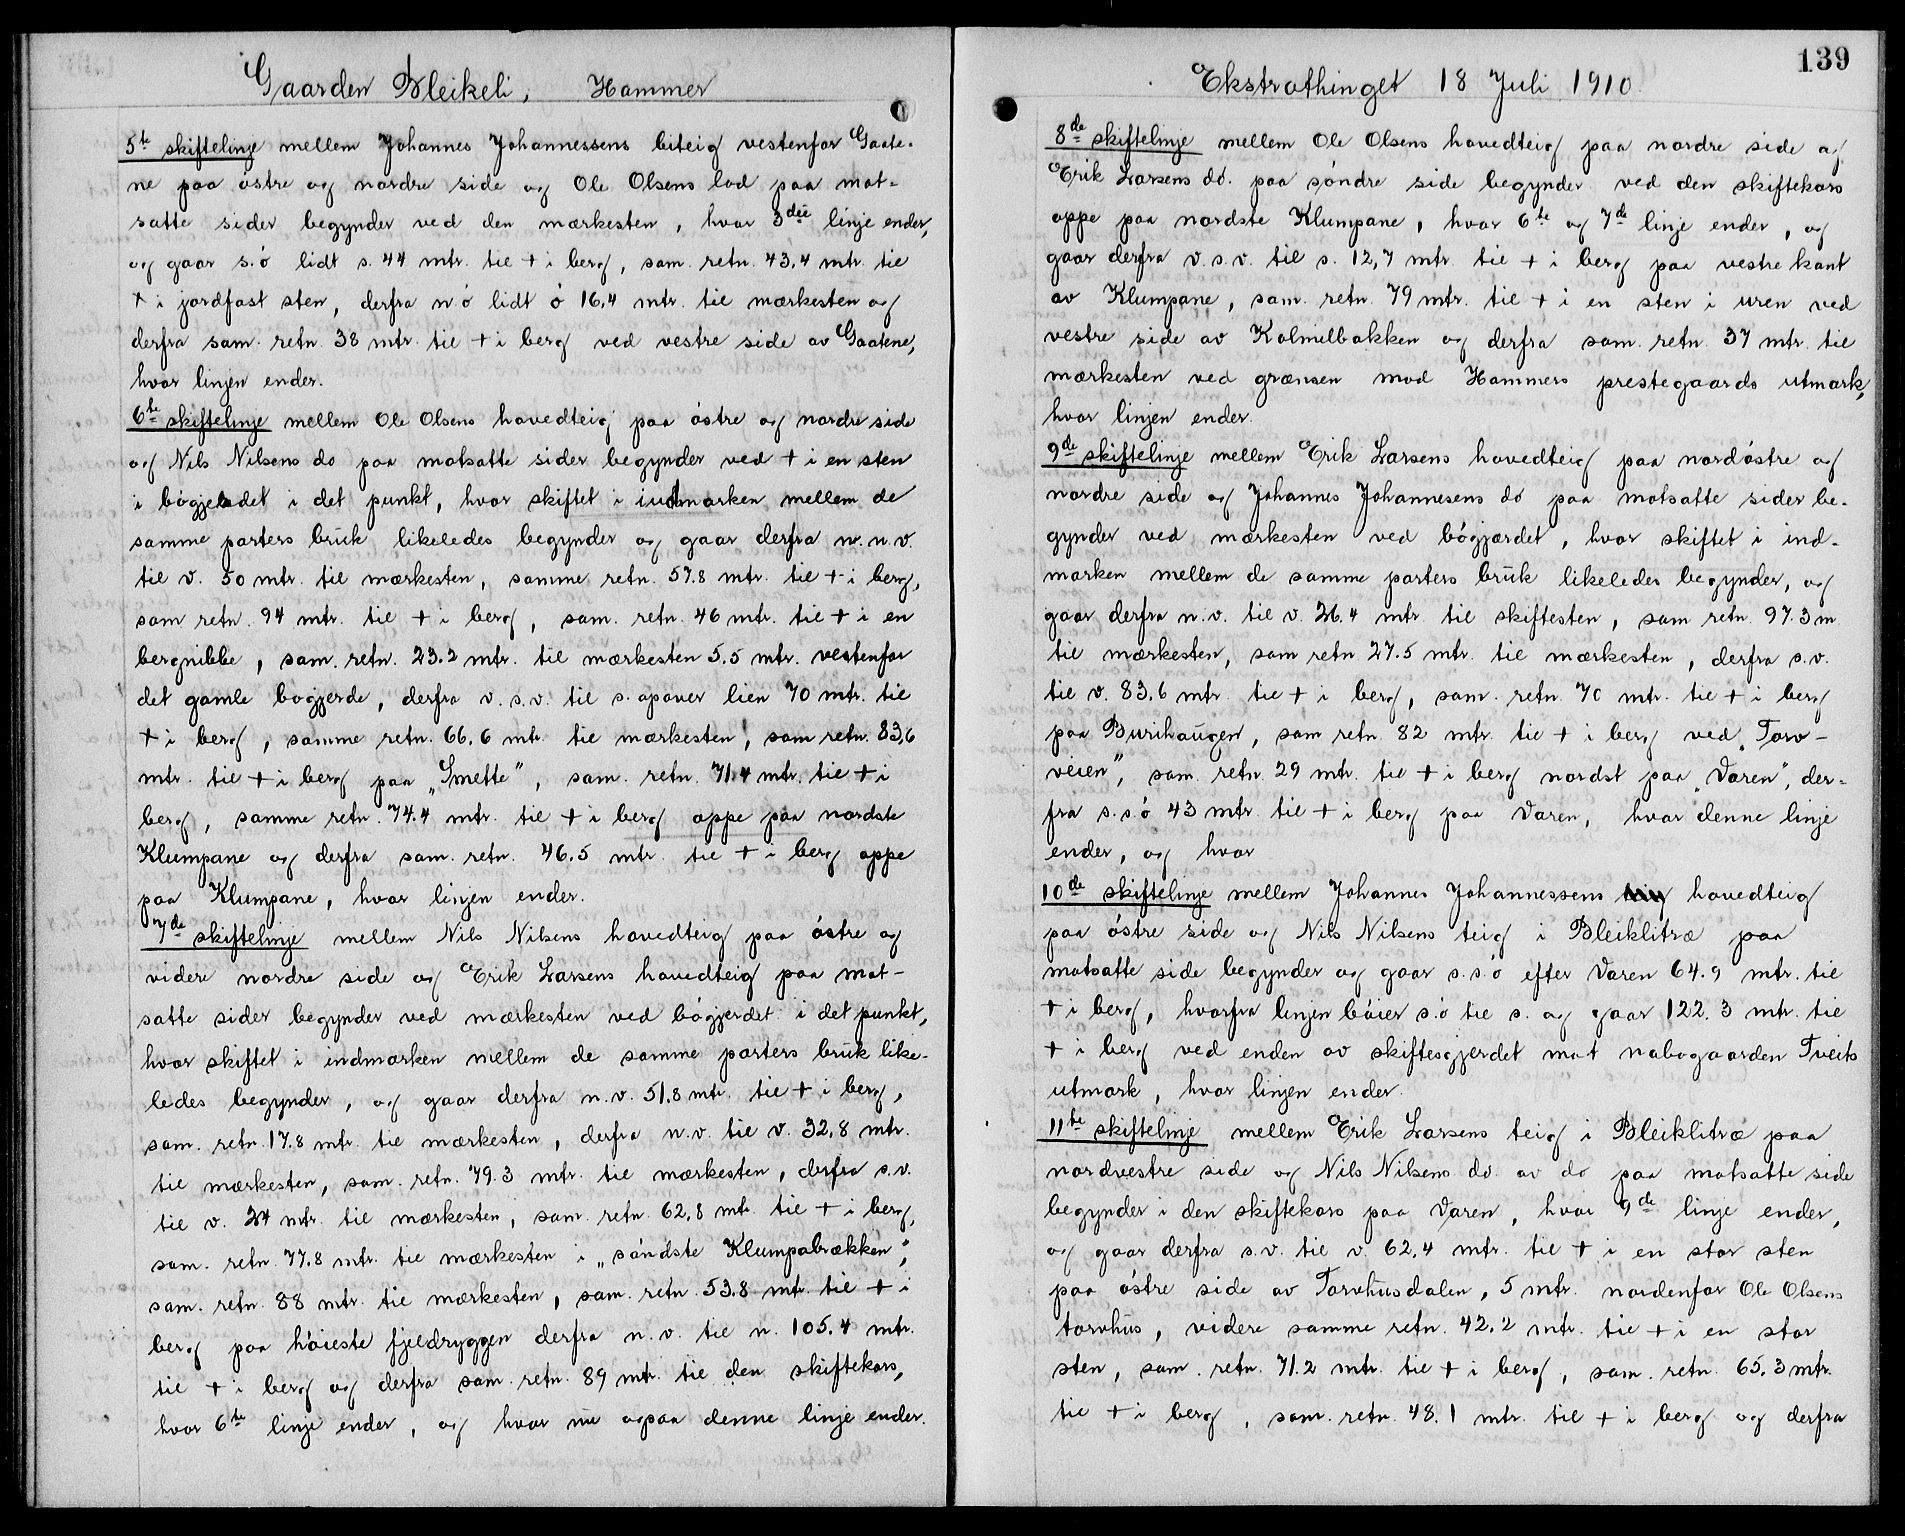 Gaarden Bleikeli, Hammer
5te skiftelinje mellem Johannes Johannessens biteig vestenfor Gaate-
ne paa östre og nordre side og Ole Olsens lod paa mot-
satte sider begynder ved den mærkesten, hvor 3die linje ender,
og gaar s.ö lidt s. 44 mtr. til + i berg, sam. retn. 43,4 mtr. til
+ i jordfast sten, derfra n ö lidt ö 16,4 mtr. til mærkesten og
derfra sam. retn. 38 mtr. til + i berg ved vestre side av Gaatene,
hvor linjen ender.
6te skiftelinje mellem Ole Olsens hovedteig paa östre og nordre side
og Nils Nilsens do paa motsatte sider begynder ved + i en sten
i bögjerdet i det punkt, hvor skiftet i indmarken mellem de
samme parters bruk likeledes begynder og gaar derfra n.n.v.
til v. 50 mtr. til mærkesten, samme retn. 57.8 mtr. til + i berg,
sam retn. 94 mtr. til + i berg, sam. retn. 46 mtr. til + i en
bergnibbe, sam. retn. 23.2 mtr. til mærkesten 5.5 mtr. vestenfor
det gamle bogjerde, derfra v.s.v. til s. opover lien 70 mtr. til
+ i berg, samme retn. 66.6 mtr til mærkesten, sam retn. 83,6
mtr. til + i berg paa „Smette”, sam. retn. 71.4 mtr. til + i
berg, samme retn. 74.4 mtr. til + i berg oppe paa nordste
Klumpane og derfra sam. retn. 46.5 mtr. til + i berg oppe
paa Klumpane, hvor linjen ender.
7de skiftelinje mellem Nils Nilsens hovedteig paa östre og
videre nordre side og Erik Larsens hovedteig paa mot-
satte sider begynder ved mærkesten ved bögjerdet i det punkt,
hvor skiftet i indmarken mellem de samme parters bruk like-
ledes begynder, og gaar derfra n.v. 51.8 mtr. til + i berg,
sam. retn. 17.8 mtr. til mærkesten, derfra n.v. til v. 32,8 mtr.
til mærkesten, sam. retn. 79.3 mtr. til mærkesten, derfra s.v.
til v. 24 mtr. til mærkesten, sam. retn. 62,8 mtr. til + i berg,
sam. retn. 77.8 mtr. til mærkesten i „söndste Klumpabrækken”,
sam. retn. 88 mtr. til mærkesten, sam. retn. 53.8 mtr. til + i
berg paa höieste fjeldryggen derfra n.v. til n. 105.4 mtr.
til + i berg og derfra sam. retn. 89 mtr. til den skiftekors,
hvor 6te linje ender, og hvor nu ogsaa denne linje ender.
Ekstrathinget 18 Juli 1910.
139
8de skiftelinje mellem Ole Olsens hovedteig paa nordre side og
Erik Larsens do. paa söndre side begynder ved den skiftekors
oppe paa nordste Klumpane, hvor 6te og 7de linje ender, og
gaar derfra v.s.v. til s. 12,7 mtr. til + i berg paa vestre kant
av Klumpane, sam. retn. 79 mtr. til + i en sten i uren ved
vestre side av Kolmilbakken og derfra sam. retn. 37 mtr. til
mærkesten ved grænsen mod Hammers prestegaards utmark,
hvor linjen ender.
9de skiftelinje mellem Erik Larsens hovedteig paa nordöstre og
nordre side og Johannes Johannesens do paa motsatte sider be-
gynder ved mærkesten ved bögjærdet, hvor skiftet i ind-
marken mellem de samme parters bruk likeledes begynder, og
gaar derfra n.v. til v. 26.4 mtr til skiftesten, sam retn. 97.3 m.
til mærkesten, sam retn 27.5 mtr. til mærkesten, derfra s.v.
til v. 83.6 mtr. til + i berg, sam. retn. 70 mtr. til + i berg
paa Burihaugen, sam retn. 82 mtr. til + i berg ved „Torv-
veien”, sam. retn. 29 mtr. til + i berg nordst paa „Varen”, der-
fra s.s.ö 43 mtr. til + i berg paa Varen, hvor denne linje
ender, og hvor
10de skiftelinje mellem Johannes Johannessens hovedteig
paa östre side og Nils Nilsens teig i Bleiklitræ paa
motsatte side begynder og gaar s.s.ö efter Varen 64.9 mtr. til
+ i berg, hvorfra linjen böier s.ö til s. og gaar 122.3 mtr. til
+ i berg ved enden av skiftesgjerdet mot nabogaarden Tveits
utmark, hvor linjen ender.
11te skiftelinje mellem Erik Larsens teig i Bleiklitræ paa
nordvestre side og Nils Nilsens do. av do paa motsatte side
begynder i den skiftekors paa Varen, hvor 9de linje ender,
og gaar derfra s.v. til v. 62,4 mtr. til + i en stor sten
paa östre side av Torvhusdalen, 5 mtr. nordenfor Ole Olsens
torvhus, videre samme retn. 42.2 mtr. til + i en stor
sten, sam. retn. 71.2 mtr. til + i berg, sam. retn. 65.3 mtr.
til + i berg, sam. retn. 48.1 mtr. til + i berg og derfra